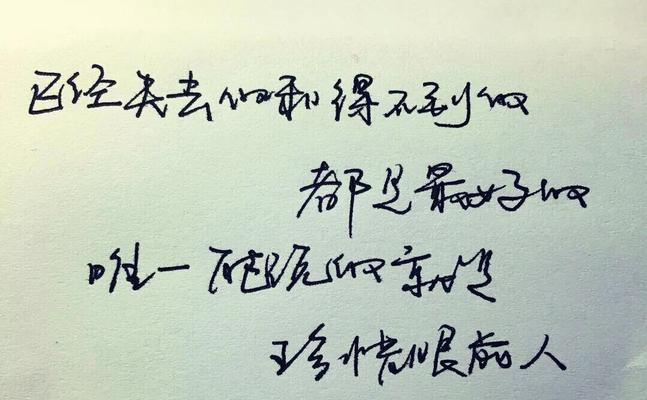 已经失去的和得不到的
都是最好的
唯一能说的就是
珍惜眼前人